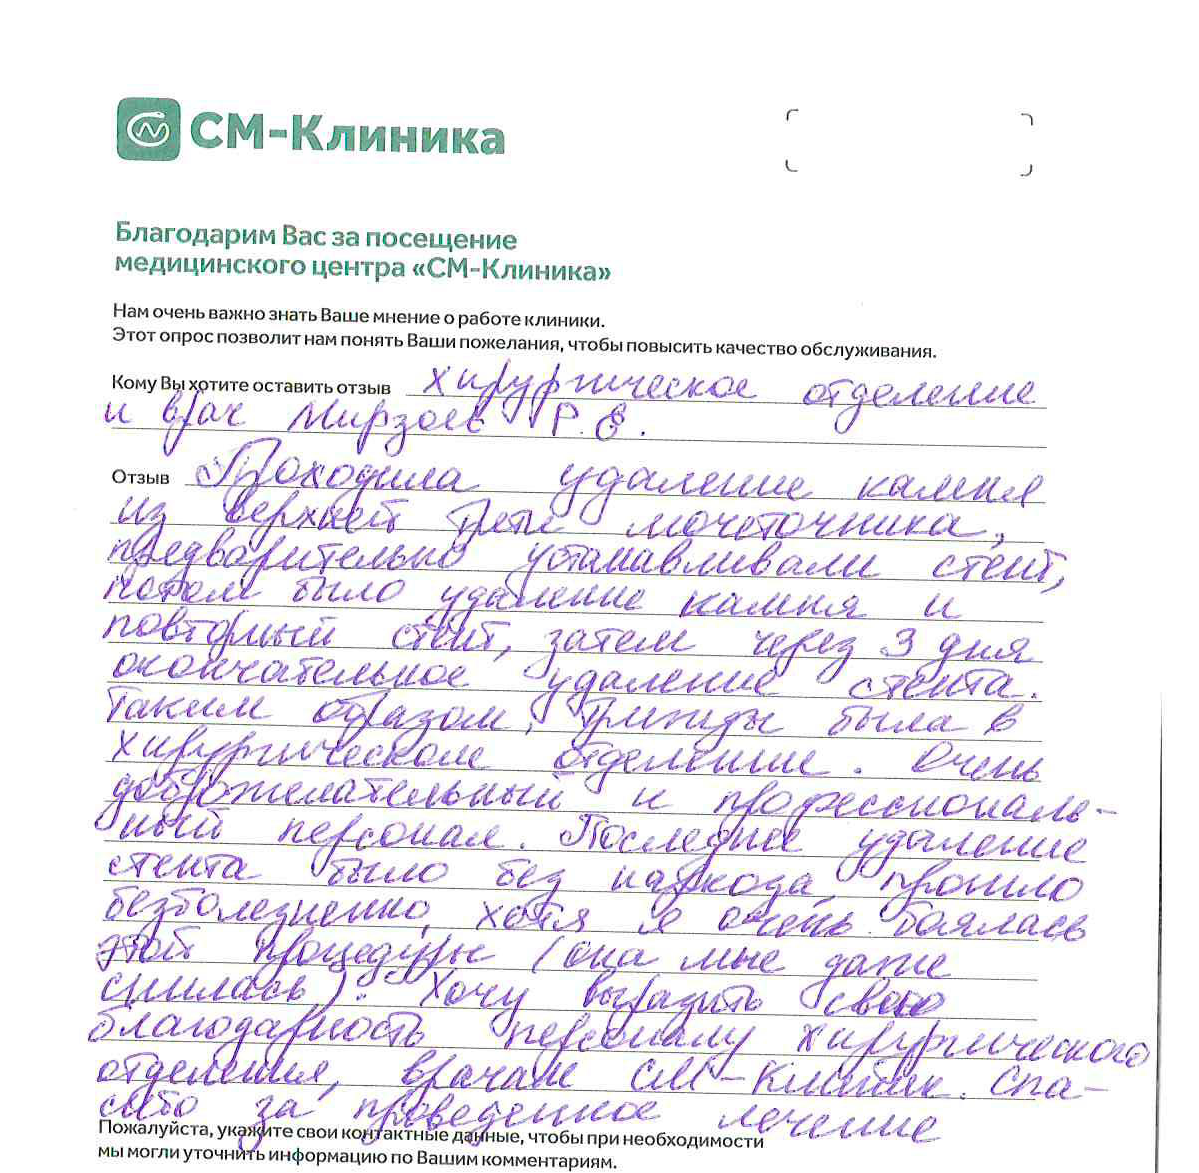 СМ-Клиника
Благодарим Вас за посещение
медицинского центра «СМ-Клиника»
Нам очень важно знать Ваше мнение о работе клиники.
Этот опрос позволит нам понять Ваши пожелания, чтобы повысить качество обслуживания.
Кому Вы хотите оставить отзыв хирургическое отделение
и врач Мирзоев Р.Е.
Отзыв Проходила удаление камня
из верхней трети мочеточника,
предварительно устанавливали стент,
потом было удаление камня и
повторный стент, затем через 3 дня
окончательное удаление стента.
Таким образом, трижды была в
хирургическом отделении. Очень
доброжелательный и профессиональ-
ный персонал. Последнее удаление
стента было без наркоза, прошло
безболезненно, хотя я очень боялась
этой процедуры (она мне даже
снилась). Хочу выразить свою
благодарность персоналу хирургического
отделения, врачам СМ-Клиник. Спа-
сибо за проведенное лечение
Пожалуйста, укажите свои контактные данные, чтобы при необходимости
мы могли уточнить информацию по Вашим комментариям.